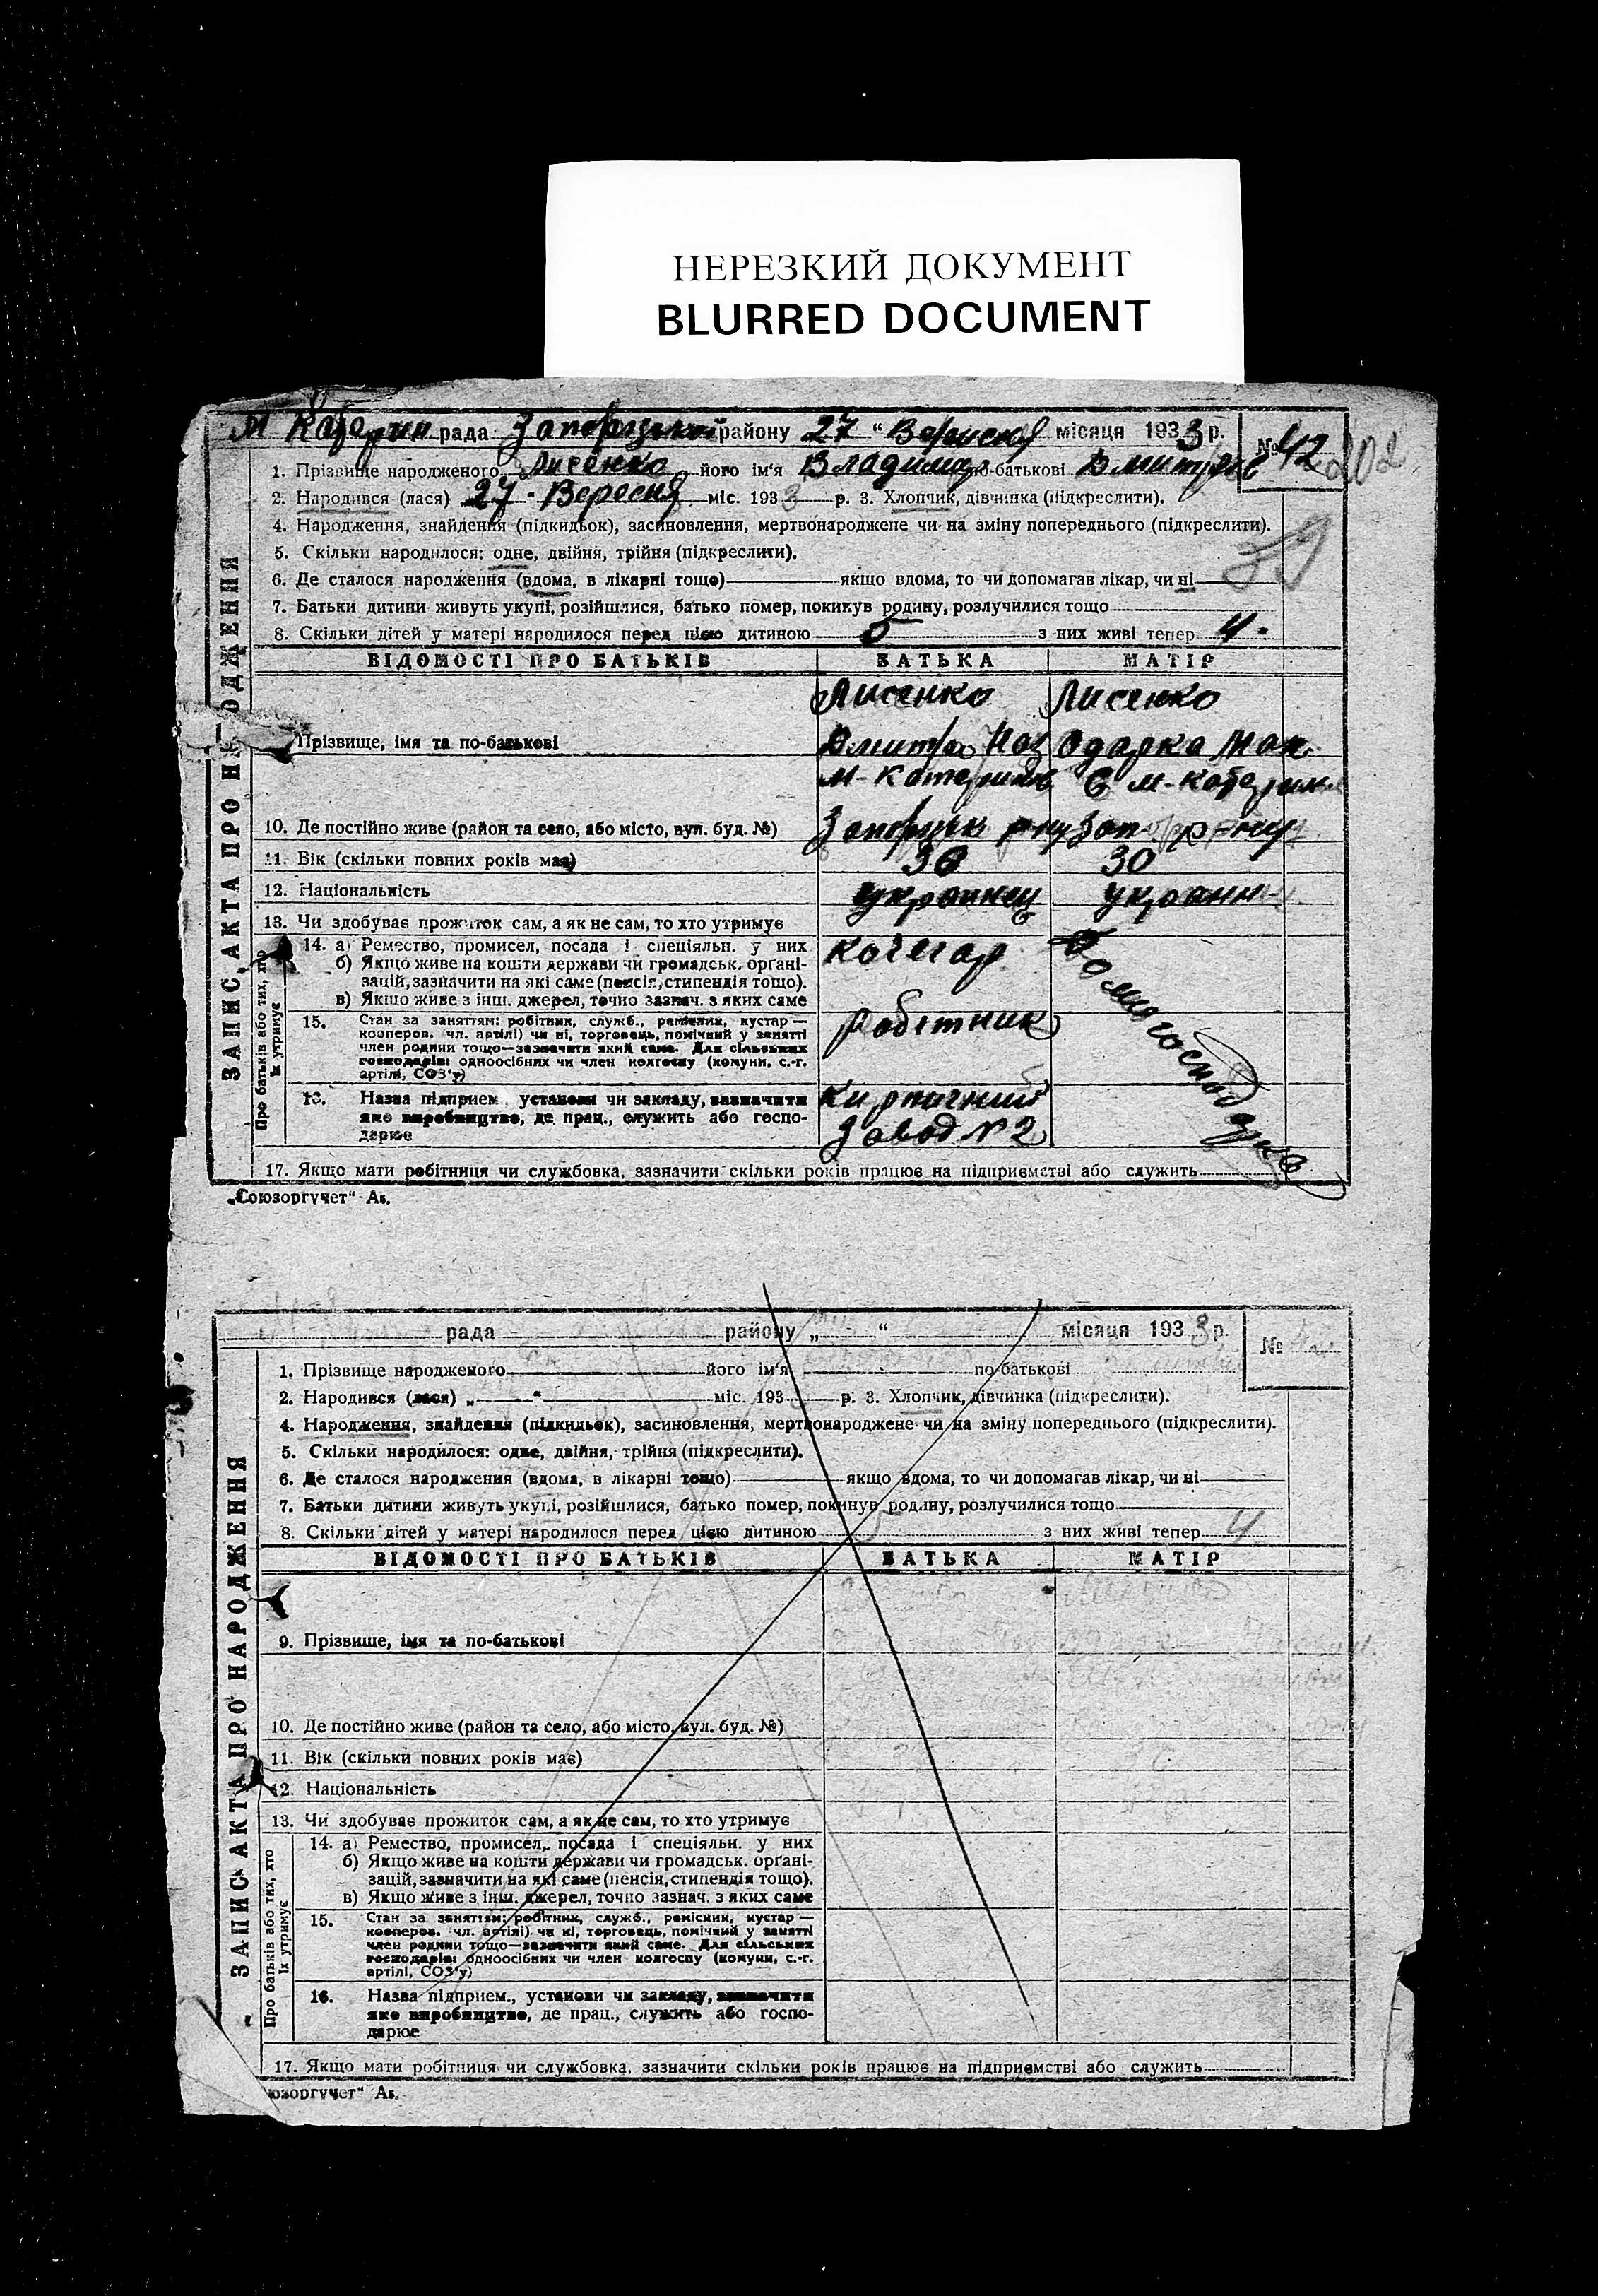 НЕРЕЗКИЙ ДОКУМЕНТ
BLURRED DOCUMENT
М Катерин рада району 27 " місяця 1933 р. № 42 202
1. Прізвище народженого Лисенко його ім'я Владимир по-батькові
2. Народився (лася) 27 - Вересня міс. 1933 р. 3. Хлопчик, дівчинка (підкреслити).
4. Народження, знайдення (підкидьок), засиновлення, мертвонароджене чи на зміну попереднього (підкреслити).
5. Скільки народилося: одне, двійня, трійня (підкреслити).
6. Де сталося народження (вдома, в лікарні тощо) якщо вдома, то чи допомагав лікар, чи ні
7. Батьки дитини живуть укупі, розійшлися, батько помер, покинув родину, розлучилися тощо
8. Скільки дітей у матері народилося перед цією дитиною 5 з них живі тепер 4.
ЗАПИС АКТА ПРО НАРОДЖЕННЯ
ВІДОМОСТІ ПРО БАТЬКІВ БАТЬКА МАТІР
Лисенко Лисенко
Прізвище, імя та по-батькові Одарка
10. Де постійно живе (район та село, або місто, вул. буд. №)
11. Вік (скільки повних років має) 36 30
12. Національність украинец украин
13. Чи здобуває прожиток сам, а як не сам, то хто утримує
Про батьків або тих, хто їх утримує
14. а) Ремество, промисел, посада і спеціяльн. у них кочегар
б) Якщо живе на кошти держави чи громадськ. органі-
зацій, зазначити на які саме (пенсія, стипендія тощо).
в) Якщо живе з інш. джерел, точно зазнач. з яких саме
15. Стан за заняттям: робітник, служб., ремісник, кустар — робітник
кооперов. чл. артілі) чи ні, торговець, помічний у занятті
член родини тощо—зазначити який саме. Для сільських
господарів: одноосібних чи член колгоспу (комуни, с.-г.
артілі, СОЗ'у)
16. Назва підприєм. установи чи закладу, зазначити Кирпичний
яке виробництво, де прац., служить або госпо- Завод № 2
дарює
Домогосподарка
17. Якщо мати робітниця чи службовка, зазначити скільки років працює на підприємстві або служить
„Союзоргучет" Ак.
рада району „ " місяця 1933 р. №
1. Прізвище народженого його ім'я по батькові
2. Народився (лася) „ " міс. 193 р. 3. Хлопчик, дівчинка (підкреслити).
4. Народження, знайдення (підкидьок), засиновлення, мертвонароджене чи на зміну попереднього (підкреслити).
5. Скільки народилося: одне, двійня, трійня (підкреслити).
6. Де сталося народження (вдома, в лікарні тощо) якщо вдома, то чи допомагав лікар, чи ні
7. Батьки дитини живуть укупі, розійшлися, батько помер, покинув родину, розлучилися тощо
8. Скільки дітей у матері народилося перед цією дитиною 5 з них живі тепер 4
ЗАПИС АКТА ПРО НАРОДЖЕННЯ
ВІДОМОСТІ ПРО БАТЬКІВ БАТЬКА МАТІР
9. Прізвище, імя та по-батькові
10. Де постійно живе (район та село, або місто, вул. буд. №)
11. Вік (скільки повних років має)
12. Національність
13. Чи здобуває прожиток сам, а як не сам, то хто утримує
Про батьків або тих, хто їх утримує
14. а) Ремество, промисел, посада і спеціяльн. у них
б) Якщо живе на кошти держави чи громадськ. органі-
зацій, зазначити на які саме (пенсія, стипендія тощо).
в) Якщо живе з інш. джерел, точно зазнач. з яких саме
15. Стан за заняттям: робітник, служб., ремісник, кустар —
кооперов. чл. артілі) чи ні, торговець, помічний у занятті
член родини тощо—зазначити який саме. Для сільських
господарів: одноосібних чи член колгоспу (комуни, с.-г.
артілі, СОЗ'у)
16. Назва підприєм., установи чи закладу, зазначити
яке виробництво, де прац., служить або госпо-
дарює
17. Якщо мати робітниця чи службовка, зазначити скільки років працює на підприємстві або служить
юзоргучет" Ак.